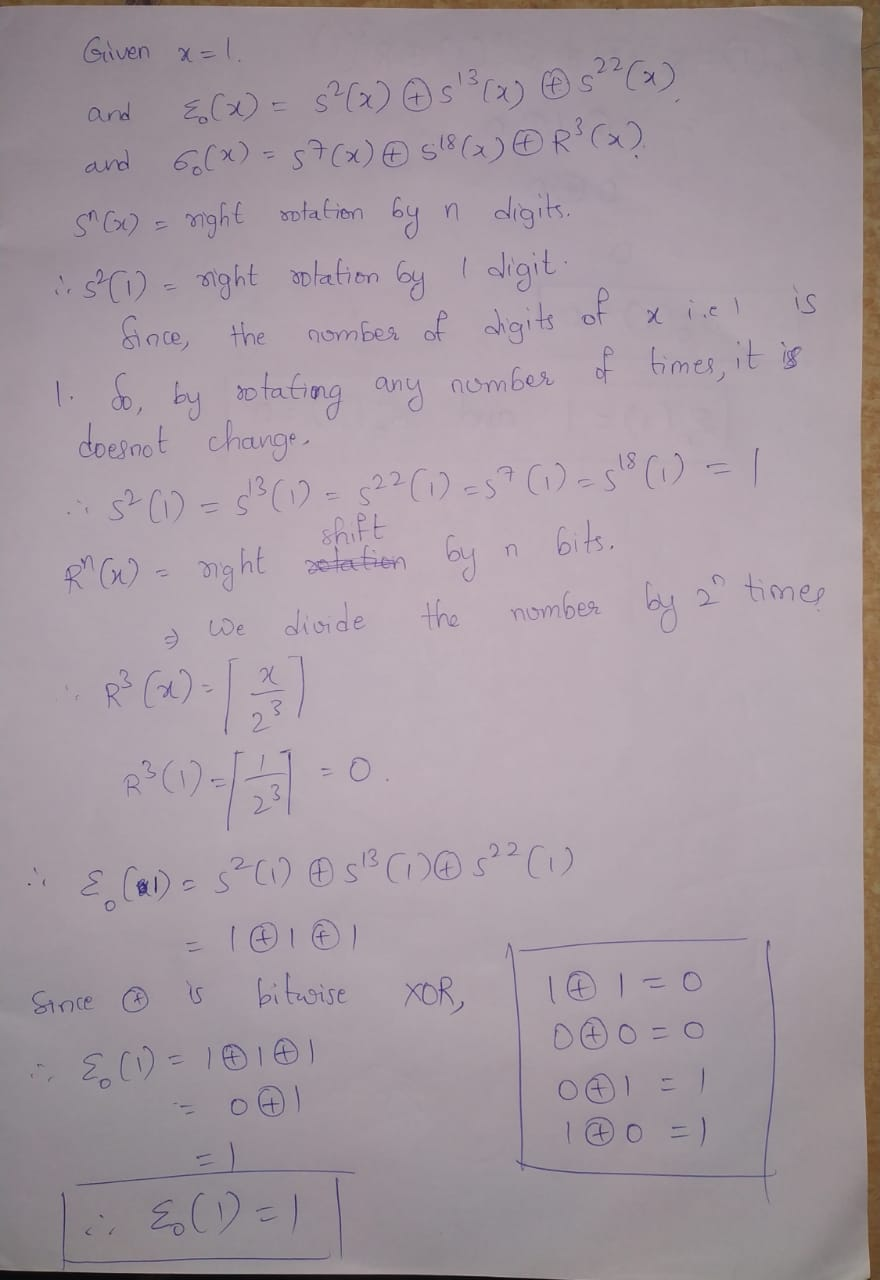 Given x = 1.
and Ɛ₀(x) = S²(x) ⊕ S¹³(x) ⊕ S²²(x)
and σ₀(x) = S⁷(x) ⊕ S¹⁸(x) ⊕ R³(x).
Sⁿ(x) = right rotation by n digits.
∴ S²(1) = right rotation by 1 digit.
Since, the number of digits of x i.e 1 is
1. So, by rotating any number of times, it is
doesnot change.
∴ S²(1) = S¹³(1) = S²²(1) = S⁷(1) = S¹⁸(1) = 1
shift
Rⁿ(x) = right rotation by n bits.
⇒ We divide the number by 2ⁿ times
∴ R³(x) = ⌈x/2³⌉
R³(1) = ⌈1/2³⌉ = 0.
∴ Ɛ₀(1) = S²(1) ⊕ S¹³(1) ⊕ S²²(1)
= 1 ⊕ 1 ⊕ 1
Since ⊕ is bitwise XOR,
∴ Ɛ₀(1) = 1 ⊕ 1 ⊕ 1
= 0 ⊕ 1
= 1
∴ Ɛ₀(1) = 1
1 ⊕ 1 = 0
0 ⊕ 0 = 0
0 ⊕ 1 = 1
1 ⊕ 0 = 1